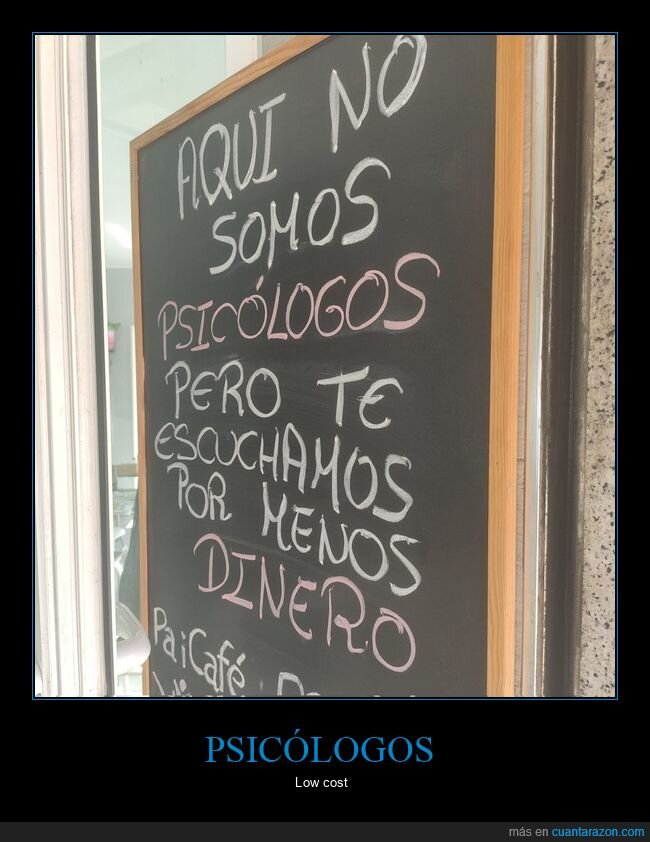 AQUI NO
SOMOS
PSICÓLOGOS
PERO TE
ESCUCHAMOS
POR MENOS
DINERO
PaiCafé
PSICÓLOGOS
Low cost
más en cuantarazon.com